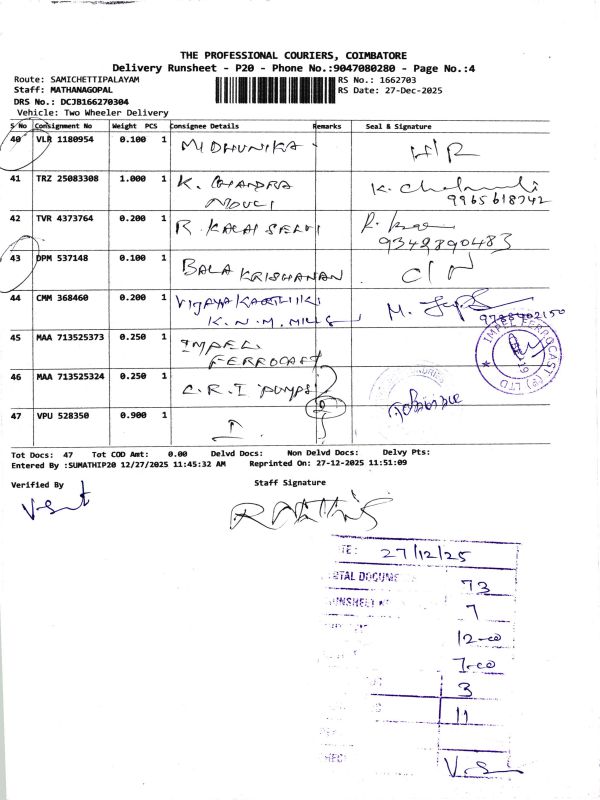 THE PROFESSIONAL COURIERS, COIMBATORE
Delivery Runsheet - P20 - Phone No.:9047080280 - Page No.:4
Route: SAMICHETTIPALAYAM
RS No.: 1662703
Staff: MATHANAGOPAL
RS Date: 27-Dec-2025
DRS No.: DCJB166270304
Vehicle: Two Wheeler Delivery
S No Consignment No Weight PCS Consignee Details Remarks Seal & Signature
40 VLR 1180954 0.100 1 MIDHUNIKA
41 TRZ 25083308 1.000 1 K. CHANDRA
MOULI
9965618742
42 TVR 4373764 0.200 1 R. KALAI SELVI
9342890483
43 DPM 537148 0.100 1 BALA KRISHANAN
44 CMM 368460 0.200 1 VIJAYA KARTHIKI
K.N.M. MILLS
9788402150
45 MAA 713525373 0.250 1 IMPEL
FERROCAST
IMPEL FERROCAST (P) LTD
46 MAA 713525324 0.250 1 C.R.I PUMPS
47 VPU 528350 0.900 1
Tot Docs: 47 Tot COD Amt: 0.00 Delvd Docs: Non Delvd Docs: Delvy Pts:
Entered By :SUMATHIP20 12/27/2025 11:45:32 AM Reprinted On: 27-12-2025 11:51:09
Verified By
Staff Signature
TE: 27/12/25
OTAL DOCUME 73
UNSHEET 7
12-00
7-00
3
11